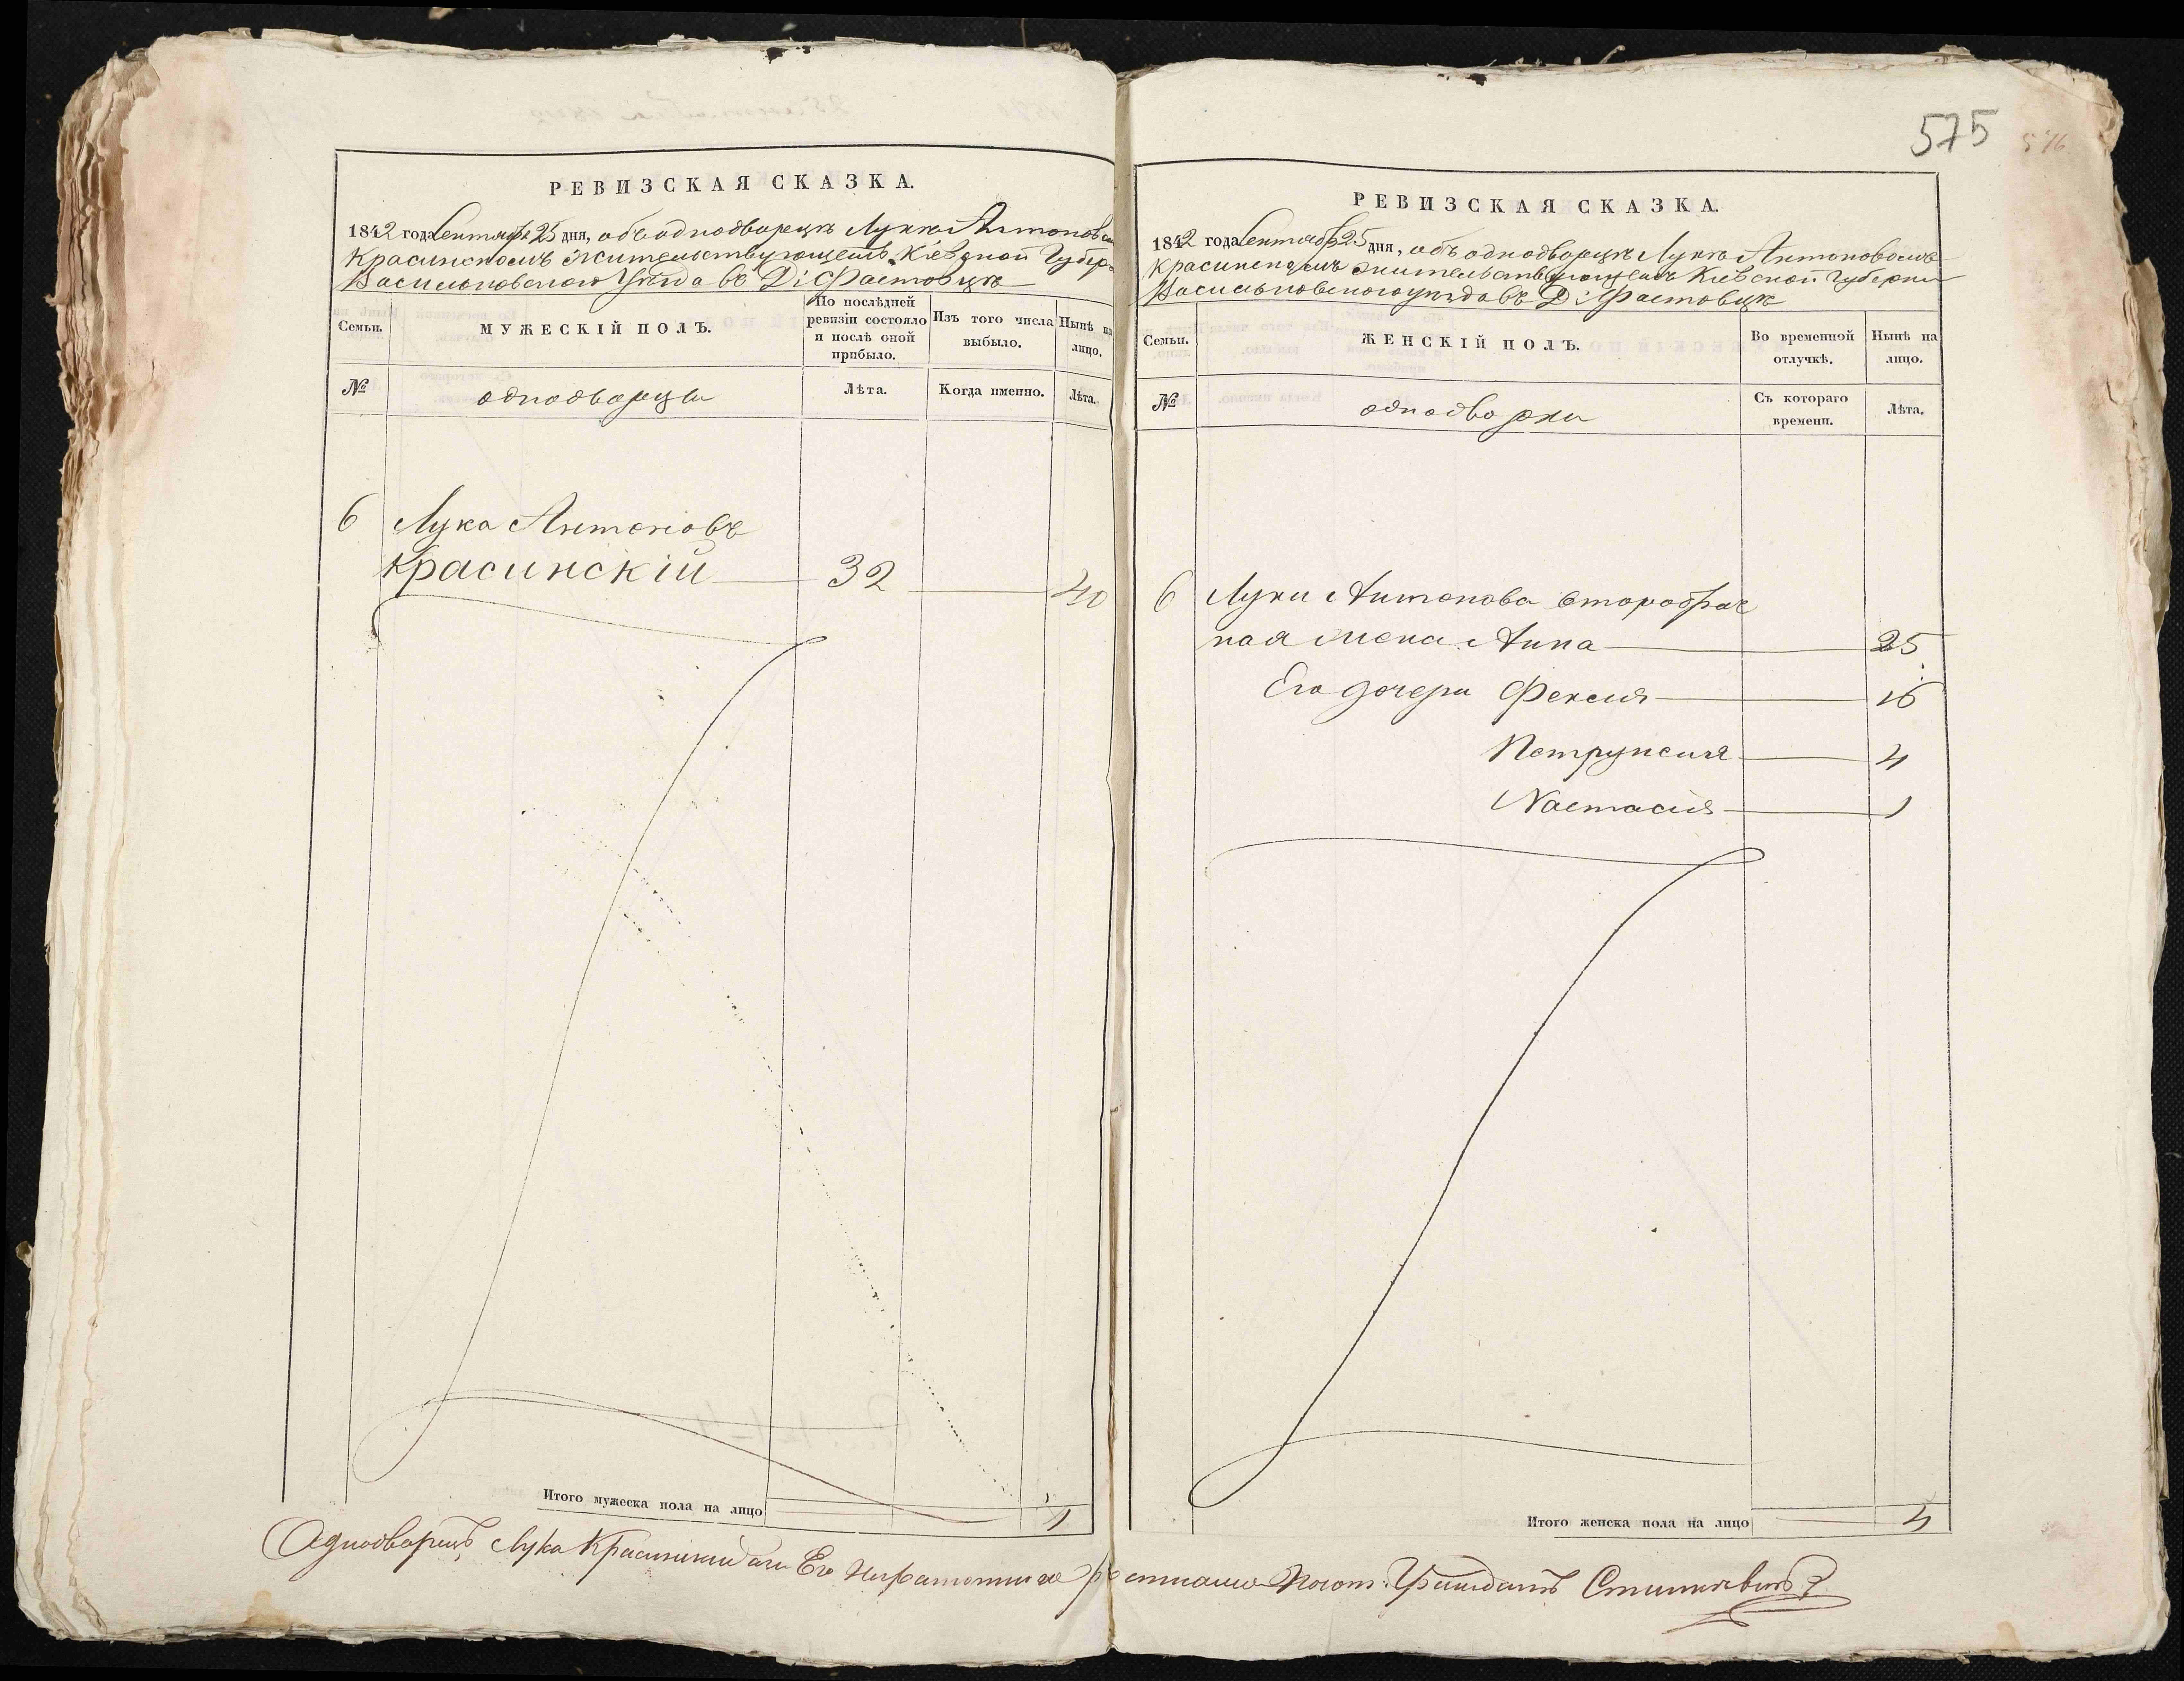 575
РЕВИЗСКАЯ СКАЗКА.
1842 года Сентября 25 дня, объ однодворцѣ Лукѣ Антоновомъ
Красинскомъ жительствующемъ Кіевской Губер.
Васильковского Уѣзда въ Д: Фастовцѣ
Семьи.
МУЖЕСКІЙ ПОЛЪ.
По послѣдней ревизіи состояло и послѣ оной прибыло.
Изъ того числа выбыло.
Нынѣ на лицо.
№
однодворцы
Лѣта.
Когда именно.
Лѣта.
6 Лука Антоновъ
Красинскій 32 40
Итого мужеска пола на лицо 1
РЕВИЗСКАЯ СКАЗКА.
1842 года Сентября 25 дня, объ однодворцѣ Лукѣ Антоновомъ
Красинскомъ жительствующемъ Кіевской Губерніи
Васильковского уѣзда въ Д: Фастовцѣ
Семьи.
ЖЕНСКІЙ ПОЛЪ.
Во временной отлучкѣ.
Нынѣ на лицо.
№
однодворки
Съ котораго времени.
Лѣта.
6 Луки Антонова второбрач
ная жена Анна 25
Его дочери Фексия 16
Петрунелия 4
Настасия 1
Итого женска пола на лицо 4
Однодворецъ Лука Красинский а за Его Неграмотного росписался